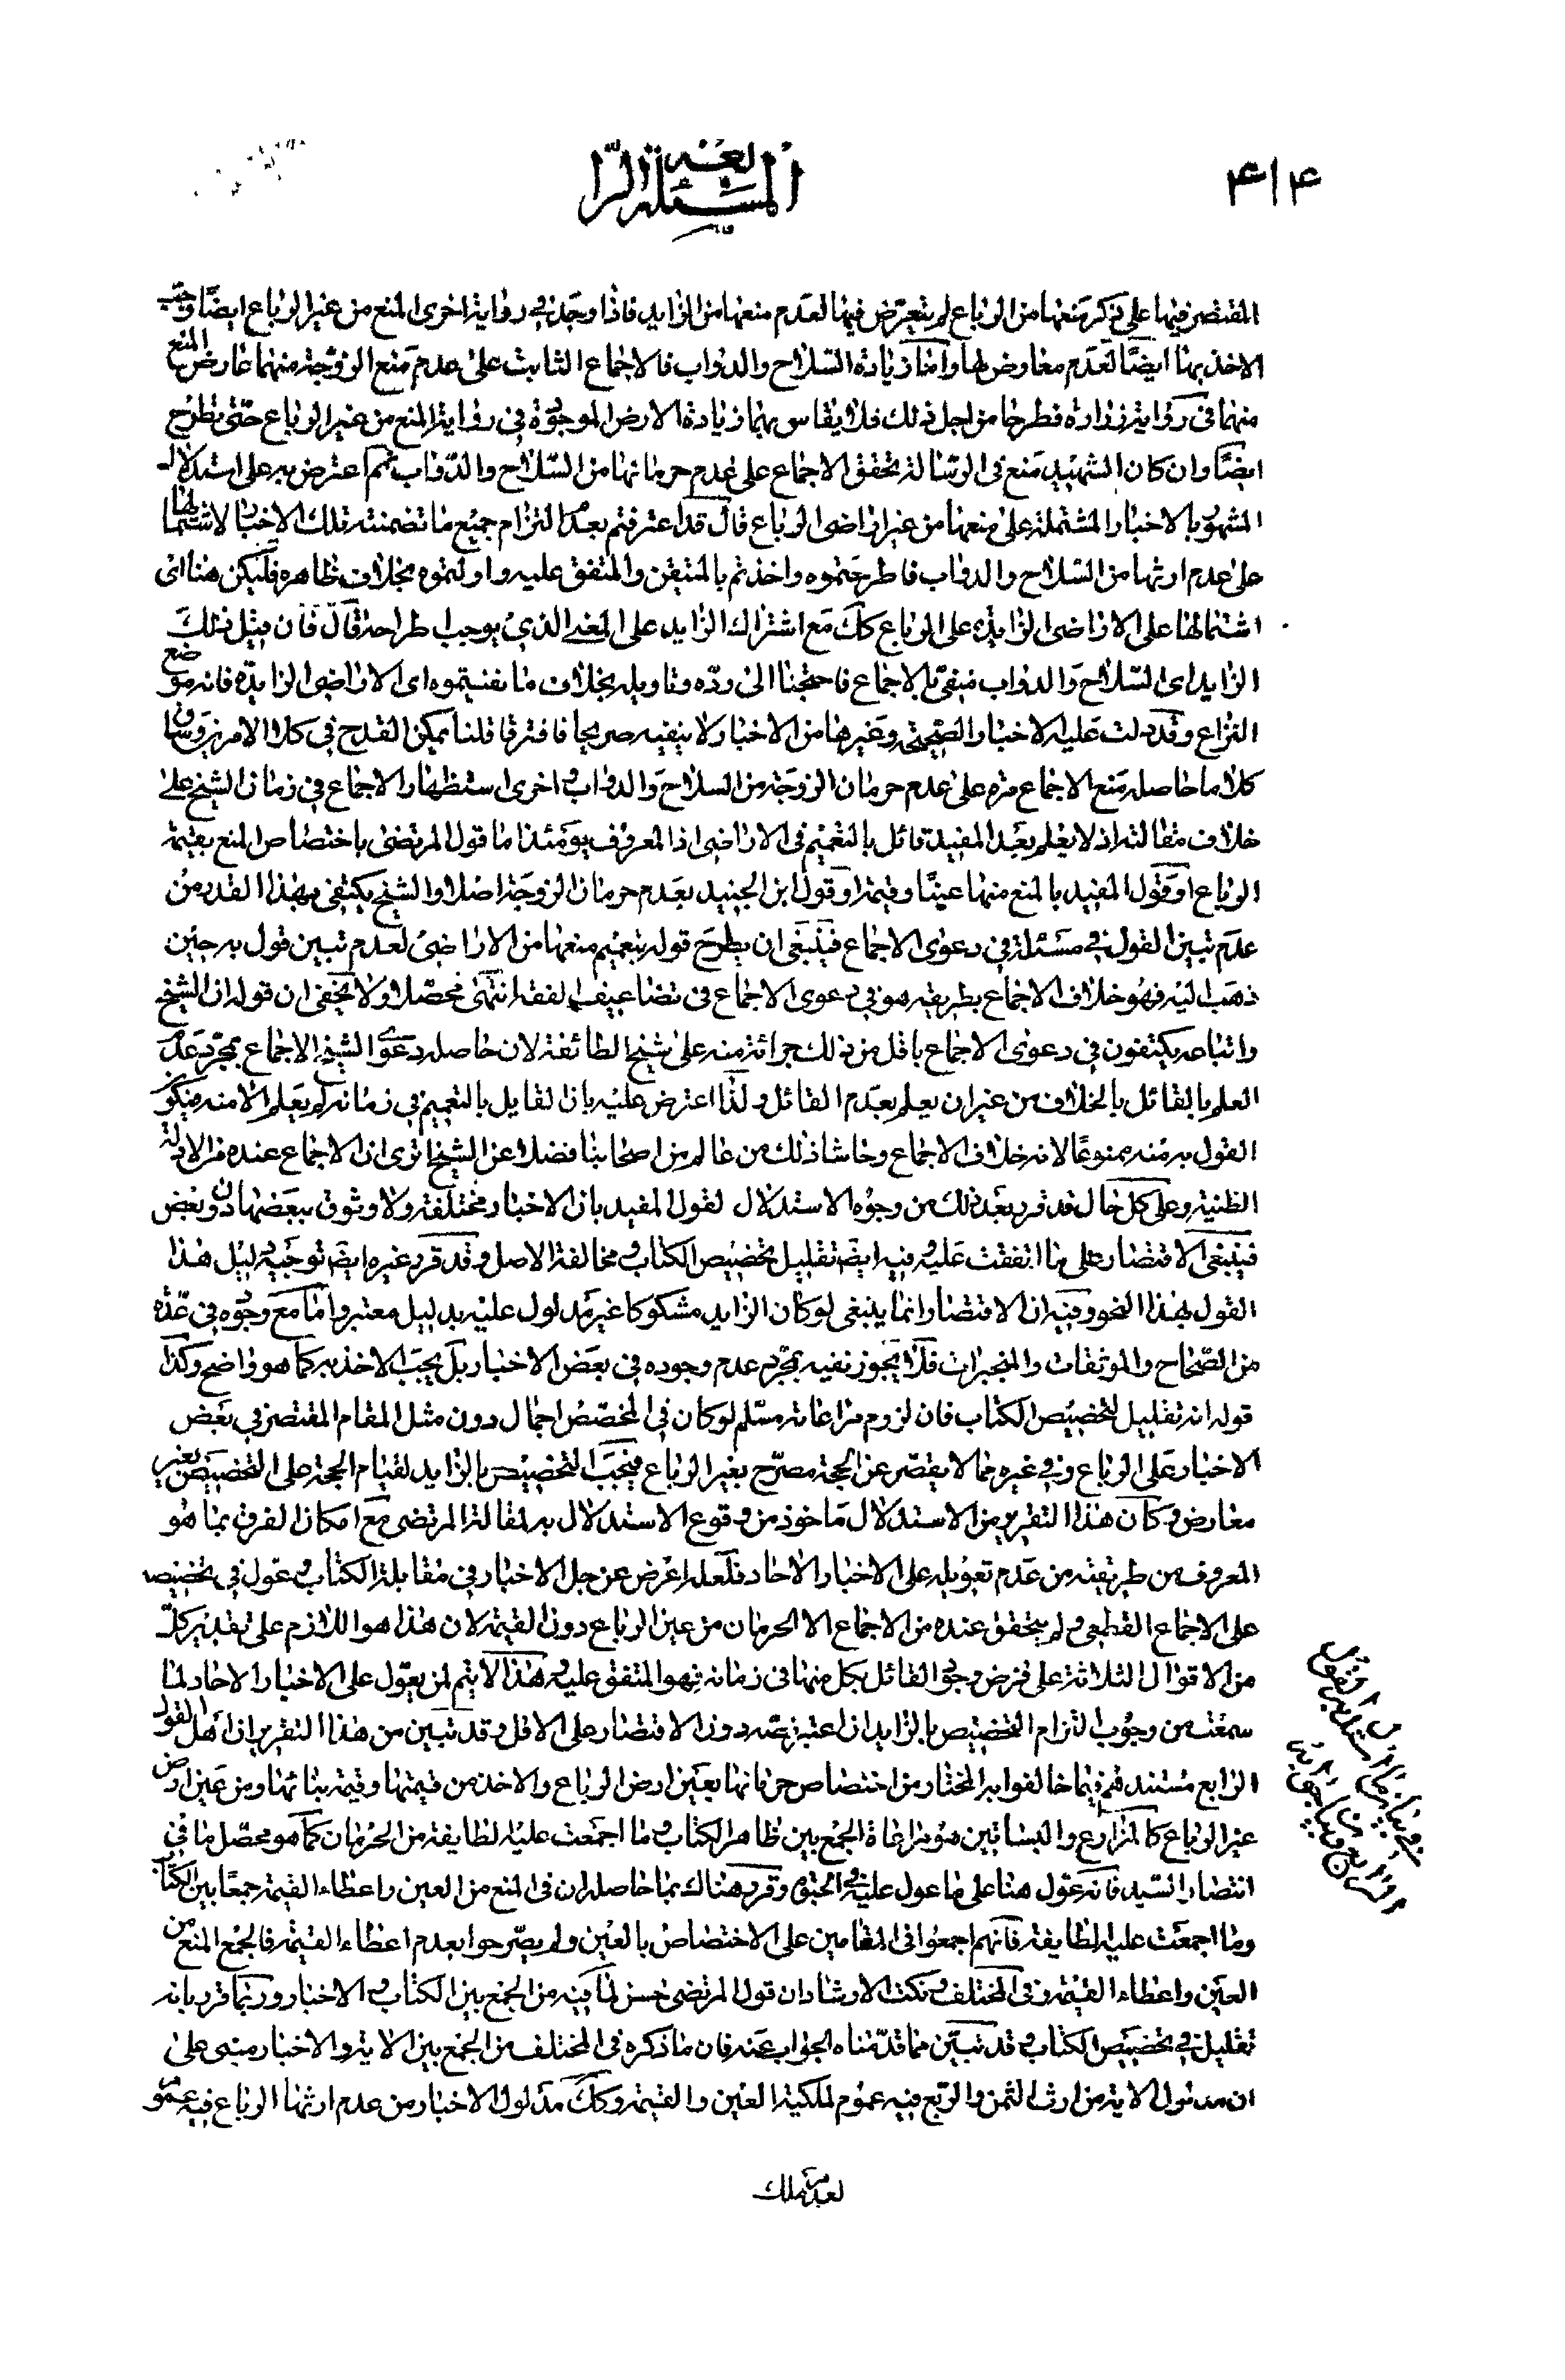 ۴۱۴
المسئلة الرابعة
المقتصر فيها على ذكر منعها من الرباع لم يتعرض فيها لعدم منعها من الزايد فاذا وجد في رواية اخرى المنع من غير الرباع ايضا وجب
الاخذ بها ايضا لعدم معارض لها واما زيادة السلاح والدواب فالاجماع الثابت على عدم منع الزوجة منهما عارض المنع
منهما في رواية زرارة فطرحنا من اجل ذلك فلا يقاس بهما زيادة الارض الموجودة في رواية المنع من غير الرباع حتى تطرح
ايضا وان كان الشهيد منع في الرسالة تحقق الاجماع على عدم حرمانها من السلاح والدواب ثم اعترض به على استدلال
المشهور بالاخبار المشتملة على منعها من غير اراضى الرباع قال قد اعترفتم بعدم التزام جميع ما تضمنته تلك الاخبار لاشتمالها
على عدم ارثها من السلاح والدواب فاطرحتموه واخذتم بالمتيقن والمتفق عليه واولتموه بخلاف ظاهره فليكن هنا اى
اشتمالها على الاراضى الزايدة على الرباع كك مع اشتراك الزايد على المعنى الذي يوجب اطراحه قال فان قيل ذلك
الزايد اى السلاح والدواب منفى بالاجماع فاحتجنا الى رده وتاويله بخلاف ما نفيتموه اى الاراضى الزايدة فانه موضع
النزاع وقد دلت عليه الاخبار الصحيحة وغيرها من الاخبار ولا ينفيه صريحا فافترقا قلنا يمكن القدح في كلا الامرين وساق
كلاما حاصله منع الاجماع مرة على عدم حرمان الزوجة من السلاح والدواب واخرى استظهار الاجماع في زمان الشيخ على
خلاف مقالته اذ لا يعلم بعد المفيد قائل بالتعميم في الاراضى اذ المعروف يومئذ اما قول المرتضى باختصاص المنع بقيمة
الرباع او قول المفيد بالمنع منها عينا وقيمة او قول ابن الجنيد بعدم حرمان الزوجة اصلا والشيخ يكتفى بهذا القدر من
عدم تبين القول في مسئلة في دعوى الاجماع فينبغى ان يطرح قوله بتعميم منعها من الاراضى لعدم تبين قول به حين
ذهب اليه فهو خلاف الاجماع بطريقه هو في دعوى الاجماع في تضاعيف الفقه انتهى محصلا ولا يخفى ان قوله ان الشيخ
واتباعه يكتفون في دعوى الاجماع باقل من ذلك جرائة منه على شيخ الطائفة لان حاصله دعوى الشيخ الاجماع بمجرد عدم
العلم بالقائل بالخلاف من غير ان يعلم بعدم القائل ولذا اعترض عليه بان القايل بالتعميم في زمانه لم يعلم الا منه فيكون
القول به منه ممنوعا لانه خلاف الاجماع وحاشا ذلك من عالم من اصحابنا فضلا عن الشيخ اترى ان الاجماع عنده من الادلة
الظنية وعلى كل حال قد قرر بعد ذلك من وجوه الاستدلال لقول المفيد بان الاخبار مختلفة ولا وثوق ببعضها دون بعض
فينبغى الاقتصار على ما اتفقت عليه وفيه ايضا تقليل تخصيص الكتاب ومخالفة الاصل وقد قرر غيره ايضا توجيه دليل هذا
القول بهذا النحو وفيه ان الاقتصار انما ينبغى لو كان الزايد مشكوكا غير مدلول عليه بدليل معتبر واما مع وجوده في عدة
من الصحاح والموثقات والمنجبرات فلا يجوز نفيه بمجرد عدم وجوده في بعض الاخبار بل يجب الاخذ به كما هو واضح وكذا
قوله انه تقليل لتخصيص الكتاب فان لزوم مراعاته مسلم لو كان في المخصص اجمال دون مثل المقام المقتصر في بعض
الاخبار على الرباع وفي غيره مما لا يقصر عن الحجة مصرح بغير الرباع فيجب التخصيص بالزايد لقيام الحجة على التخصيص بغير
معارض وكان هذا التقرير من الاستدلال ماخوذ من وقوع الاستدلال به لمقالة المرتضى مع امكان الفرق بما هو
المعروف من طريقته من عدم تعويله على الاخبار الاحاد فلعله اعرض عن جل الاخبار في مقابلة الكتاب وعول في تخصيصه
على الاجماع القطعى ولم يتحقق عنده من الاجماع الا الحرمان من عين الرباع دون القيمة لان هذا هو اللازم على تقدير كل
من الاقوال الثلاثة على فرض وجود القائل بكل منها في زمانه فهو المتفق عليه وهذا لا يتم لمن يعول على الاخبار الاحاد لما
سمعت من وجوب التزام التخصيص بالزايد ان اعتبر نصه دون الاقتصار على الاقل وقد تبين من هذا التقرير ان اهل القول
الرابع مستندهم فيما خالفوا به المختار من اختصاص حرمانها بعين ارض الرباع والاخذ من قيمتها وقيمة بنائها ومن عين ارض
غير الرباع كالمزارع والبساتين هو مراعاة الجمع بين ظاهر الكتاب وما اجمعت عليه الطايفة من الحرمان كما هو محصل ما في
انتصار السيد فانه عول هنا على ما عول عليه في الحبوة وقرر هناك بما حاصله ان في المنع من العين واعطاء القيمة جمعا بين الكتاب
وما اجمعت عليه الطايفة فانهم اجمعوا في المقامين على الاختصاص بالعين ولم يصرحوا بعدم اعطاء القيمة فالجمع المنع من
العين واعطاء القيمة وفى المختلف ونكت الارشاد ان قول المرتضى حسن لما فيه من الجمع بين الكتاب والاخبار وربما قرر بانه
تقليل في تخصيص الكتاب وقد تبين مما قدمناه الجواب عنه فان ما ذكره في المختلف من الجمع بين الاية والاخبار مبنى على
ان مدلول الاية من ارث الثمن والربع فيه عموم لملكية العين والقيمة وكك مدلول الاخبار من عدم ارثها الرباع فيه عموم
لعدم ملك